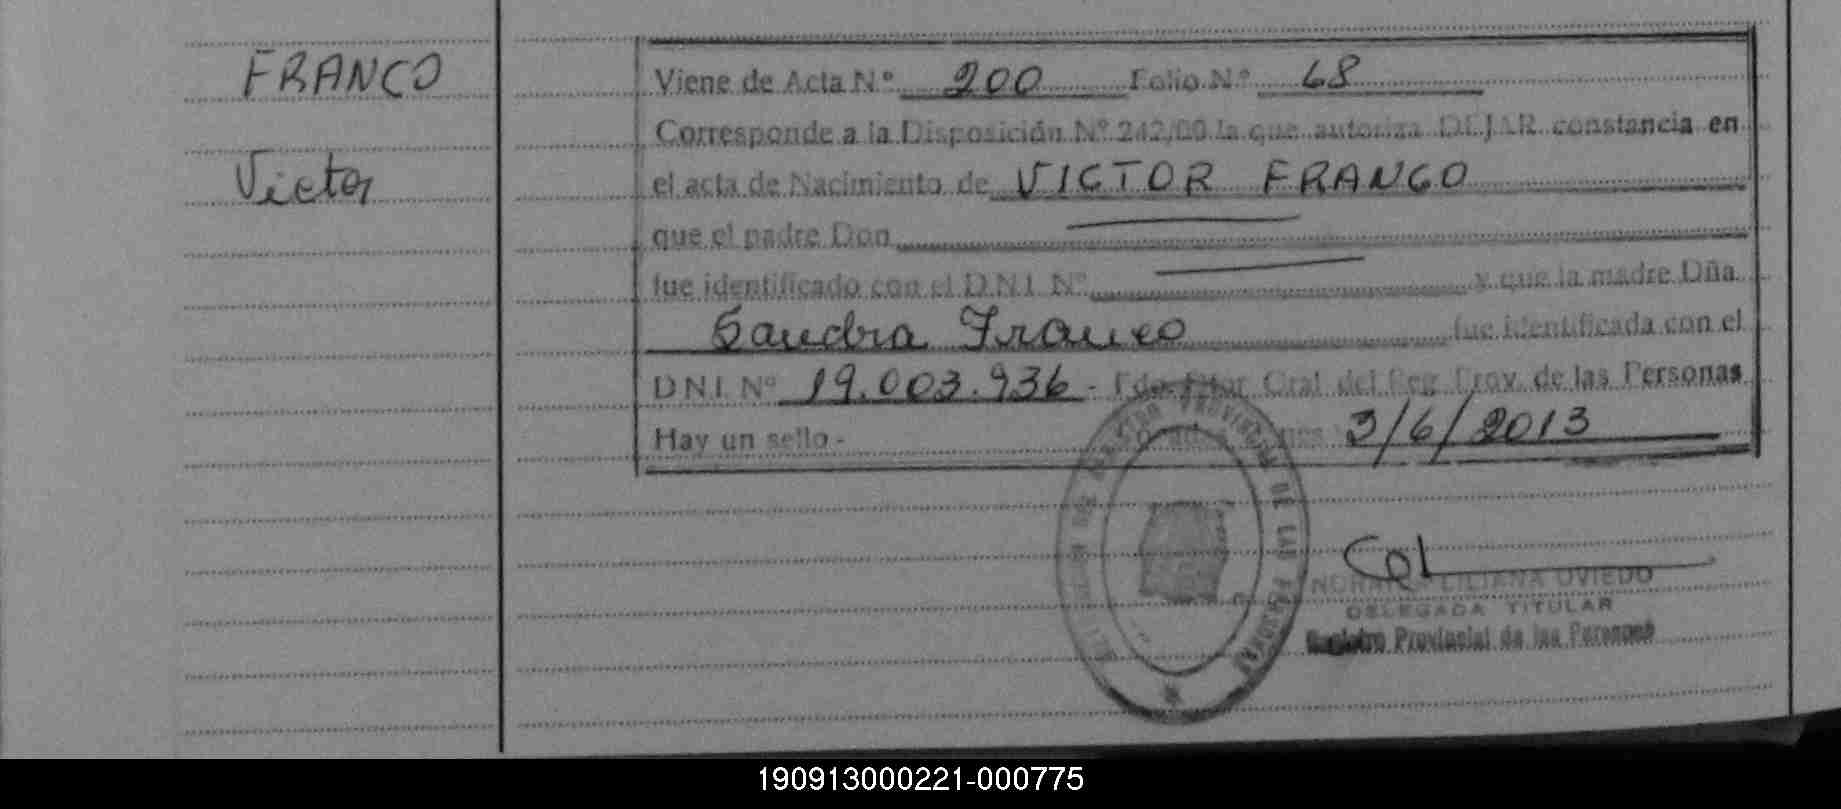 FRANCO
Victor
Viene de Acta Nº 200 Folio Nº 68
Corresponde a la Disposición Nº 242/00 la que autoriza DEJAR constancia en
el acta de Nacimiento de VICTOR FRANCO
que el padre Don
fue identificado con el D.N.I. Nº y que la madre Dña.
Sandra Franco fue identificada con el
D.N.I. Nº 19.003.936 - Fdo. Dtor Gral. del Reg. Prov. de las Personas
Hay un sello.- 3/6/2013
PROVINCIAL DE LAS PERSONAS
LILIANA OVIEDO
DELEGADA TITULAR
Registro Provincial de las Personas
190913000221-000775